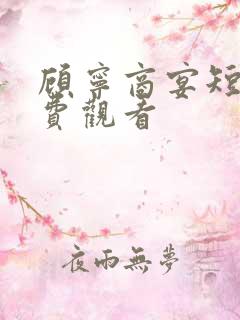 顧寧商宴短
費觀看
夜雨無夢